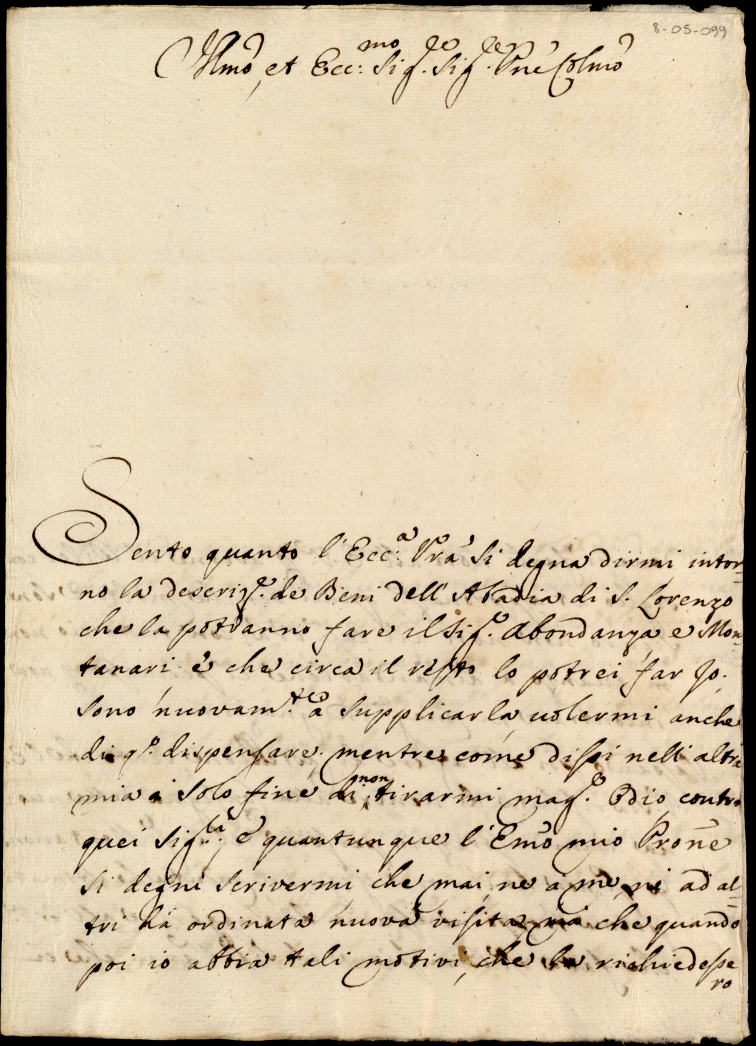 8-05-099
Illmõ, et Ecc:mo Sig.re Sig.re Pñe Colmõ
Sento quanto l'Ecc:a Vrã si degna dirmi intor-
no la descriz.e de Beni dell'Abadia di S. Lorenzo
che la potranno fare il Sig.r Abondanza e Mon-
tanari è che circa il resto lo potrei far Jo.
sono nuovam.te à supplicarla uolermi anche
di q.o dispensare, mentre come dissi nell'altra
mia è solo fine di non tirarmi mag.r Odio contro
quei Sig.ri, e quantunque l'Emõ mio Proñe
si degni scrivermi che mai, ne à me, ni ad al-
tri hà ordinata nuova visita mà che quando
poi io abbia tali motivi, che la richiedesse
ro